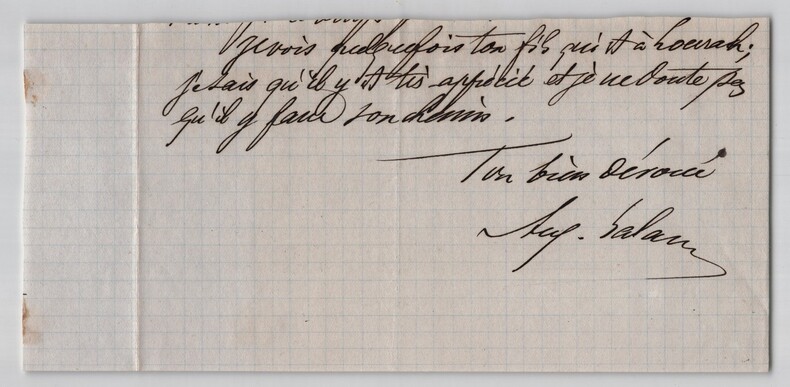 Je vois quelquefois ton fils qui est à hourah;
je sais qu'il y est très apprécié et je ne doute pas
qu'il y fasse son chemin.
Ton bien dévoué
Aug. Salam